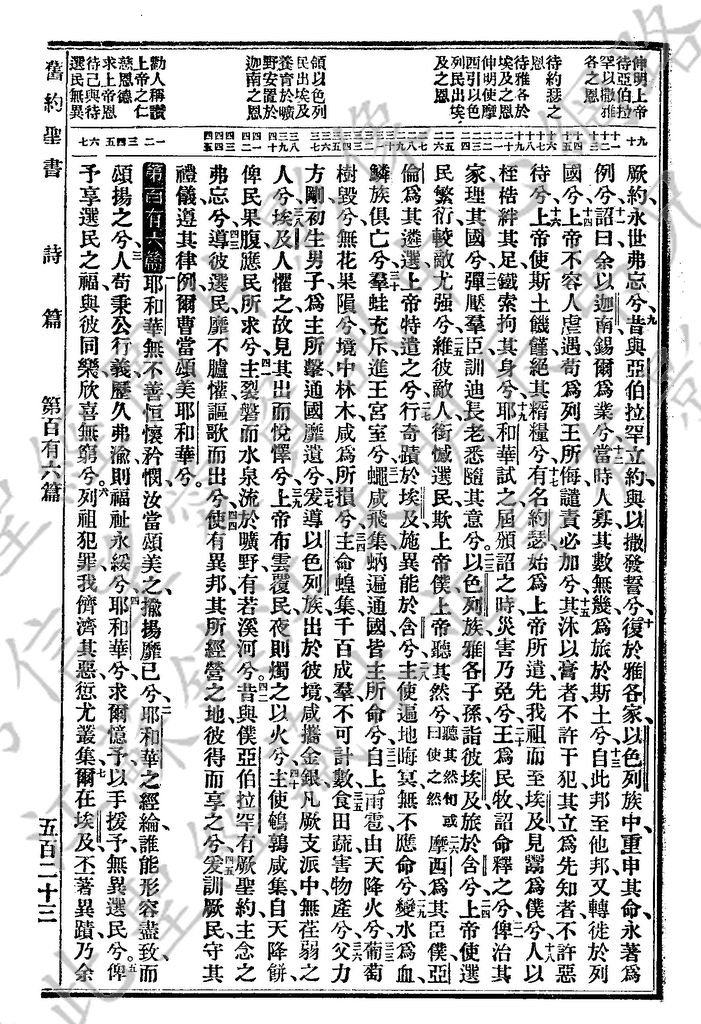 伸明上帝
待亞伯拉
罕以撒雅
各之恩
待約瑟之
恩
待雅各於
埃及之恩
伸明使摩
西引以色
列民出埃
及之恩
領以色列
民出埃及
養育於曠
野安置於
迦南之恩
勸人稱讚
上帝之仁
慈恩德
求上帝恩
待己與待
選民無異
厥約永世弗忘兮昔與亞伯拉罕立約與以撒發誓兮復於雅各家以色列族中重申其命永著爲
例兮詔曰余以迦南錫爾爲業兮當時人寡其數無幾爲旅於斯土兮自此邦至他邦又轉徙於列
國兮上帝不容人虐遇苟爲列王所侮譴責必加兮其沐以膏者不許干犯其立爲先知者不許惡
待兮上帝使斯土饑饉絕其糈糧兮有名約瑟始爲上帝所遣先我祖而至埃及見鬻爲僕兮人以
桎梏絆其足鐵索拘其身兮耶和華試之屆頒詔之時災害乃免兮王爲民牧詔命釋之兮俾治其
家理其國兮彈壓羣臣訓迪長老悉隨其意兮以色列族雅各子孫詣彼埃及旅於含兮上帝使選
民繁衍較敵尤强兮維彼敵人銜憾選民欺上帝僕上帝聽其然兮聽其然句或曰使之然摩西爲其臣僕亞
倫爲其遴選上帝特遣之兮行奇蹟於埃及施異能於含兮主使遍地晦冥無不應命兮變水爲血
鱗族俱亡兮羣蛙充斥進王宮室兮蠅咸飛集蚋遍通國皆主所命兮自上雨雹由天降火兮葡萄
樹毀兮無花果隕兮境中林木咸爲所損兮主命蝗集千百成羣不可計數食田蔬害物產兮父力
方剛初生男子爲主所擊通國靡遺兮爰導以色列族出於彼境咸攜金銀凡厥支派中無荏弱之
人兮埃及人懼之故見其出而悅懌兮上帝布雲覆民夜則燭之以火兮主使鵪鶉咸集自天降餅
俾民果腹應民所求兮主裂磐而水泉流於曠野有若溪河兮昔與僕亞伯拉罕有厥聖約主念之
弗忘兮導彼選民靡不臚懽謳歌而出兮使有異邦其所經營之地彼得而享之兮爰訓厥民守其
禮儀遵其律例爾曹當頌美耶和華兮
第百有六篇耶和華無不善恒懷矜憫汝當頌美之揄揚靡已兮耶和華之經綸誰能形容盡致而
頌揚之兮人苟秉公行義歷久弗渝則福祉永綏兮耶和華兮求爾憶予以手援予無異選民兮俾
予享選民之福與彼同樂欣喜無窮兮列祖犯罪我儕濟其惡愆尤叢集爾在埃及丕著異蹟乃余
舊約聖書 詩篇 第百有六篇 五百二十三